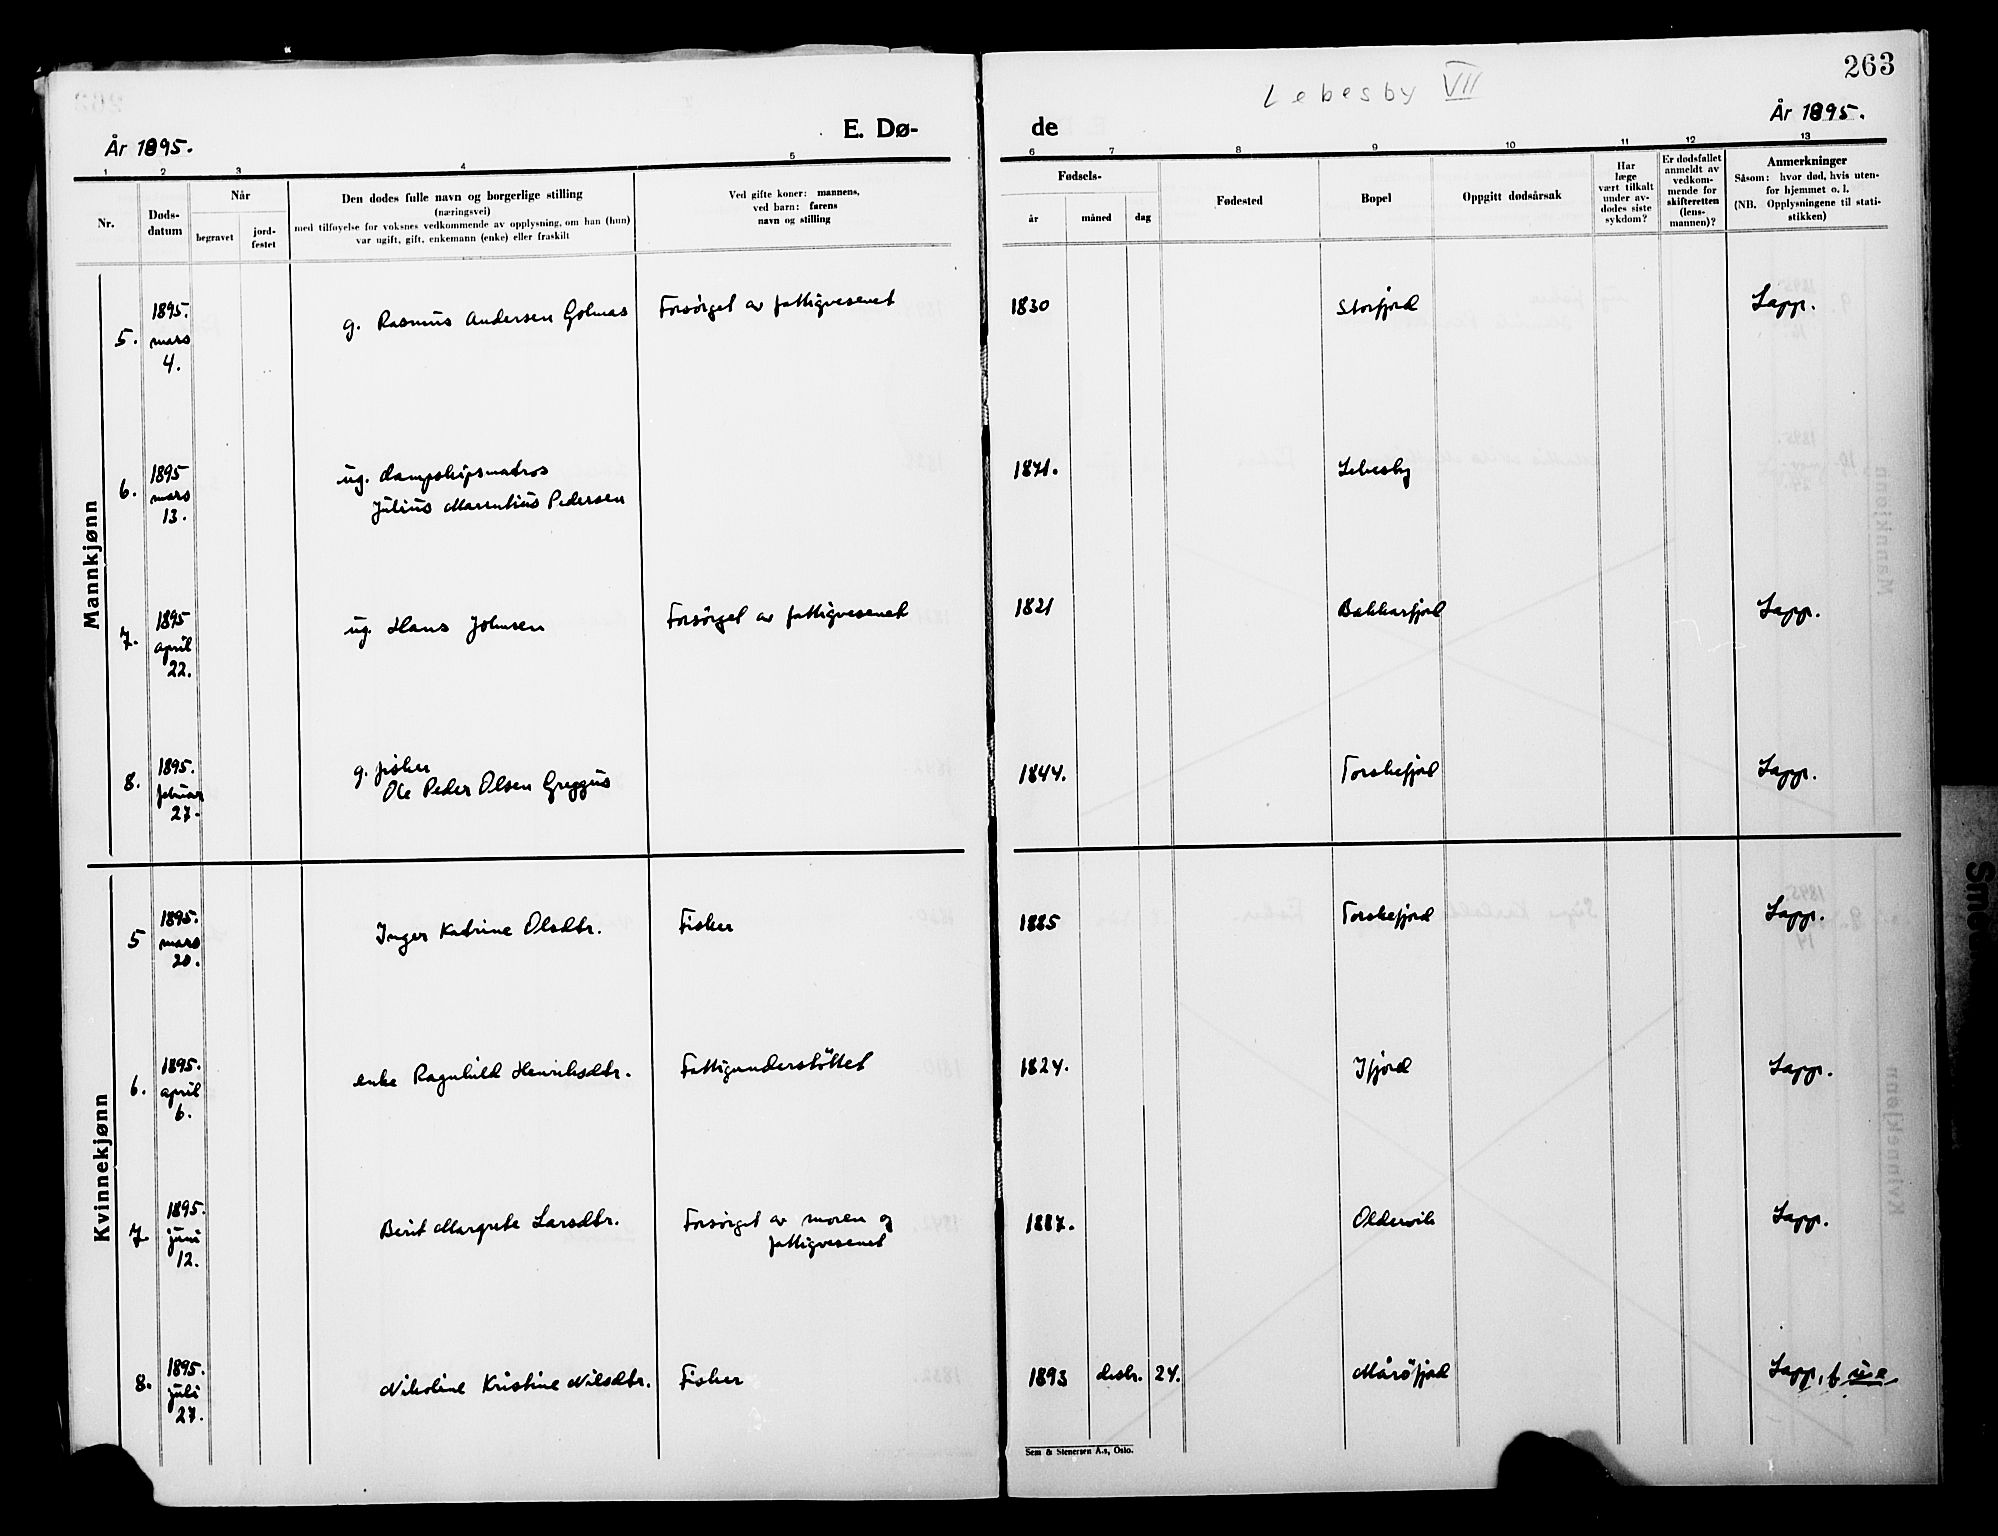 263
Lebesby VII
År 1895.
E. Dø-
de
År 1895.
1 2 3 4 5 6 7 8 9 10 11 12 13
Nr.
Døds-
datum
Når
begravet
jord-
festet
Den dødes fulle navn og borgerlige stilling
(næringsvei)
med tilføyelse for voksnes vedkommende av opplysning, om han (hun)
var ugift, gift, enkemann (enke) eller fraskilt
Ved gifte koner: mannens,
ved barn: farens
navn og stilling
Fødsels-
år
måned
dag
Fødested
Bopel
Oppgitt dødsårsak
Har
læge
vært tilkalt
under av-
dødes siste
sykdom?
Er dødsfallet
anmeldt av
vedkom-
mende for
skifteretten
(lens-
mannen)?
Anmerkninger
Såsom: hvor død, hvis uten-
for hjemmet o. l.
(NB. Opplysningene til stati-
stikken)
Mannkjønn
5. 1895. mars 4. g. Rasmus Andersen Golmas Forsörget av fattigvesenet 1830 Storfjord Lapp.
6. 1895 mars 13. ug. dampskipsmatros
Julius Marentius Pedersen 1871. Lebesby
7. 1895 april 22. ug. Hans Johnsen Forsörget av fattigvesenet 1821 Bekkarfjord Lapp.
8. 1895. februar 27. g. fisker
Ole Peder Olsen Greggus 1844. Torskefjord Lapp.
Kvinnekjønn
5 1895. mars 20. Inger Katrine Olsdtr. Fisker 1885 Torskefjord Lapp.
6. 1895. april 6. enke Ragnhild Henriksdtr. Fattigunderstöttet 1824. Ifjord Lapp.
7 1895. juni 12. Berit Margrete Larsdtr. Forsörget av moren og
fattigvesenet 1887. Oldervik Lapp.
8. 1895. juli 27. Nikoline Kristine Nilsdtr. Fisker 1893 desbr. 24. Måröfjord Lapp, f u.e.
Sem & Stenersen A.s, Oslo.